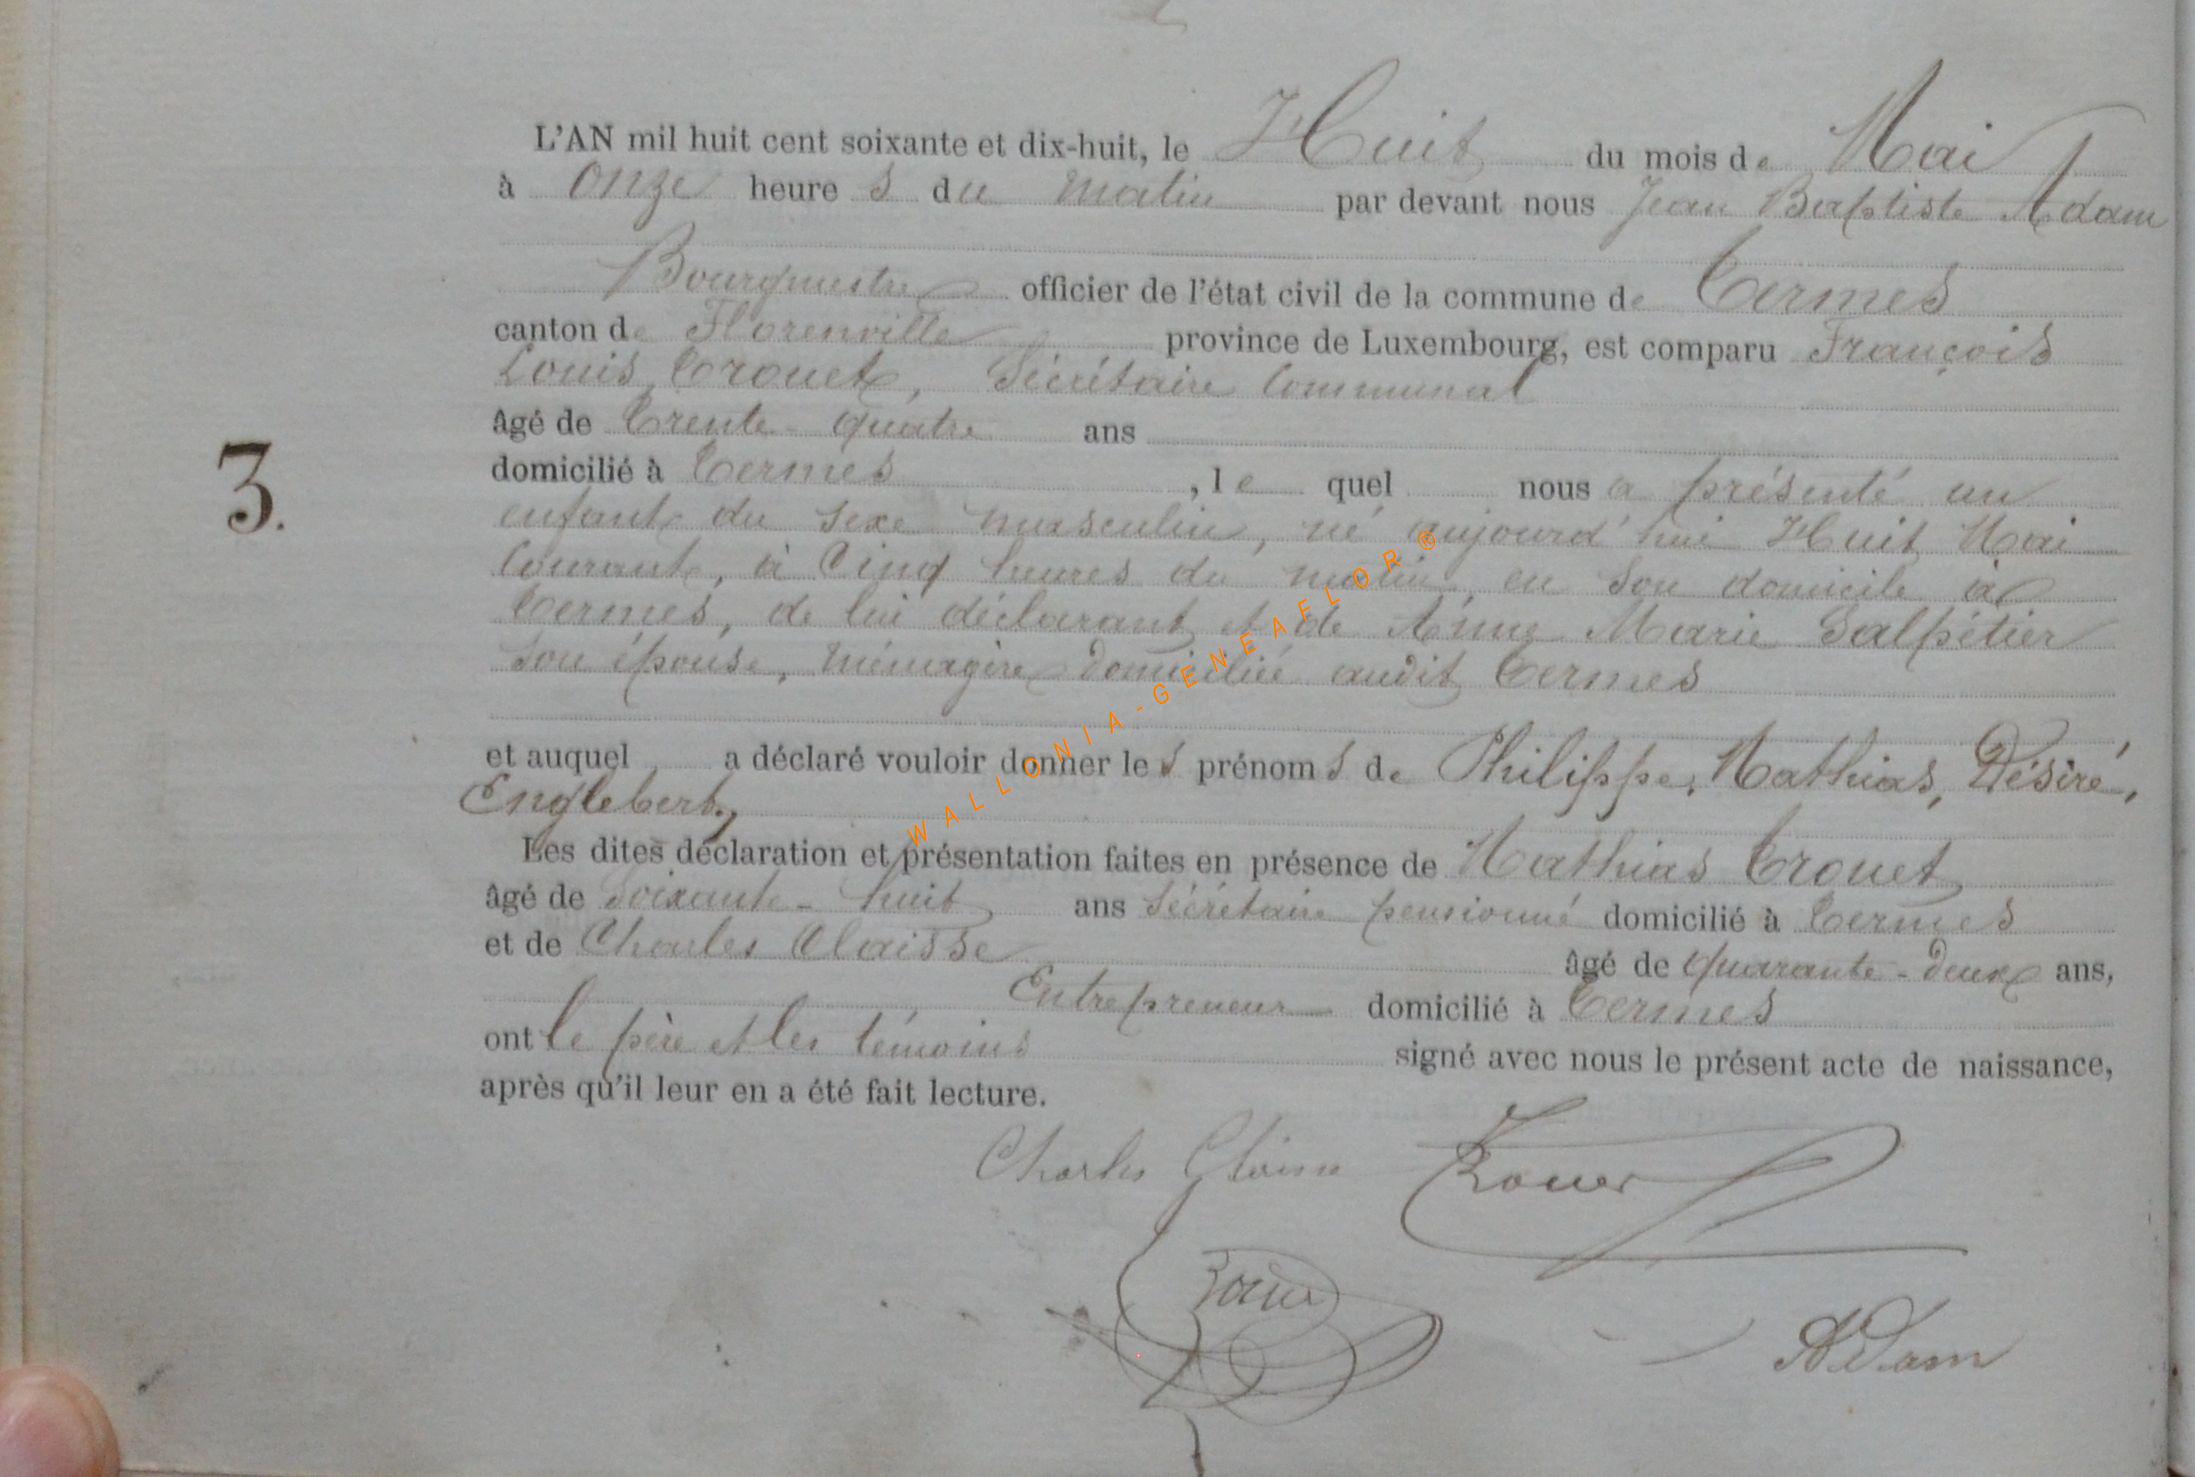 L'AN mil huit cent soixante et dix-huit, le Huit du mois de Mai
à Onze heures du matin par devant nous Jean Baptiste Adam
Bourgmestre officier de l'état civil de la commune de Termes
canton de Florenville province de Luxembourg, est comparu François
Louis Trouet, Sécrétaire Communal
âgé de Trente-quatre ans
domicilié à Termes, lequel nous a présenté un
enfant du sexe masculin, né aujourd'hui Huit Mai
Courant, à Cinq heures du matin, en son domicile à
Termes, de lui déclarant et de Anne Marie Salpétier
son épouse, ménagère domiciliée audit Termes
et auquel a déclaré vouloir donner les prénoms de Philippe, Mathias, Désiré,
Englebert,
3.
Les dites déclaration et présentation faites en présence de Mathias Trouet
âgé de Soixante-huit ans Sécrétaire pensionné domicilié à Termes
et de Charles Claisse âgé de quarante-deux ans,
Entrepreneur domicilié à Termes
ont le père et les témoins signé avec nous le présent acte de naissance,
après qu'il leur en a été fait lecture.
Charles
Adam
WALLONIA-GENEAFLOR®